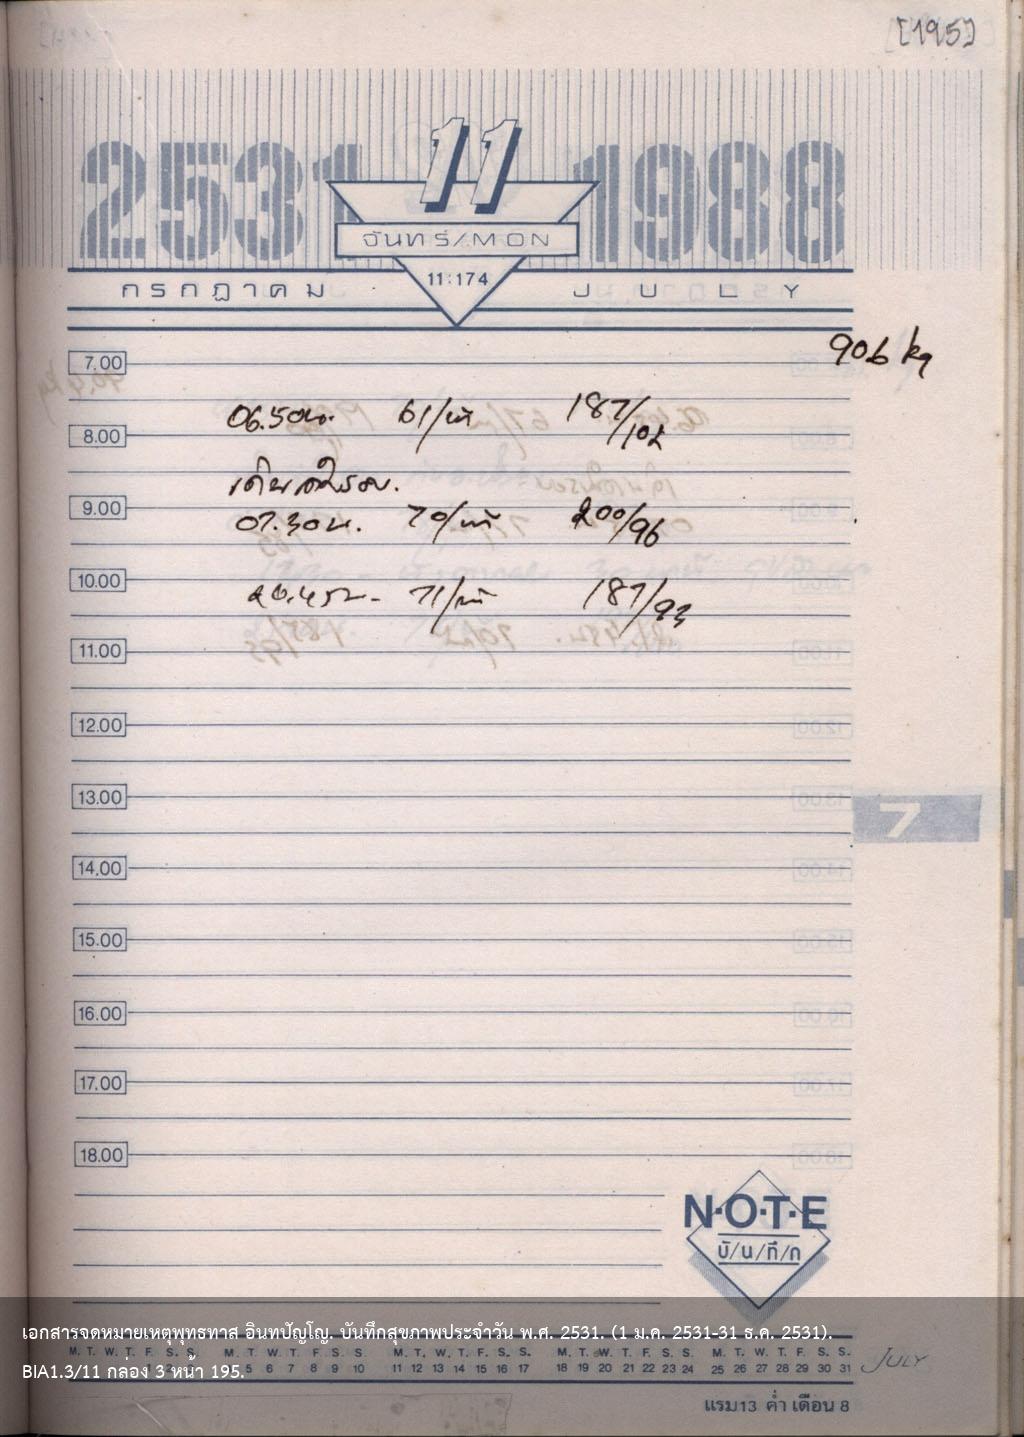 [195]
2531 11 1988
จันทร์/MON
11:174
กรกฎาคม JULY
90.6 kg
7.00
06.50น. 61/นาที 187/102
8.00
เดินรอบ.
9.00
07.30น. 70/นาที 200/96
10.00
20.45น. 71/นาที 187/93
11.00
12.00
13.00
7
14.00
15.00
16.00
17.00
18.00
N·O·T·E
บั/น/ทึ/ก
เอกสารจดหมายเหตุพุทธทาส อินทปัญโญ. บันทึกสุขภาพประจำวัน พ.ศ. 2531. (1 ม.ค. 2531-31 ธ.ค. 2531).
M. T. W. T. F. S. S. M. T. W. T. F. S. S. M. T. W. T. F. S. S. M. T. W. T. F. S. S. M. T. W. T. F. S. S.
4 5 6 7 8 9 10 11 12 13 14 15 16 17 18 19 20 21 22 23 24 25 26 27 28 29 30 31 JULY
BIA1.3/11 กล่อง 3 หน้า 195.
แรม13 ค่ำ เดือน 8